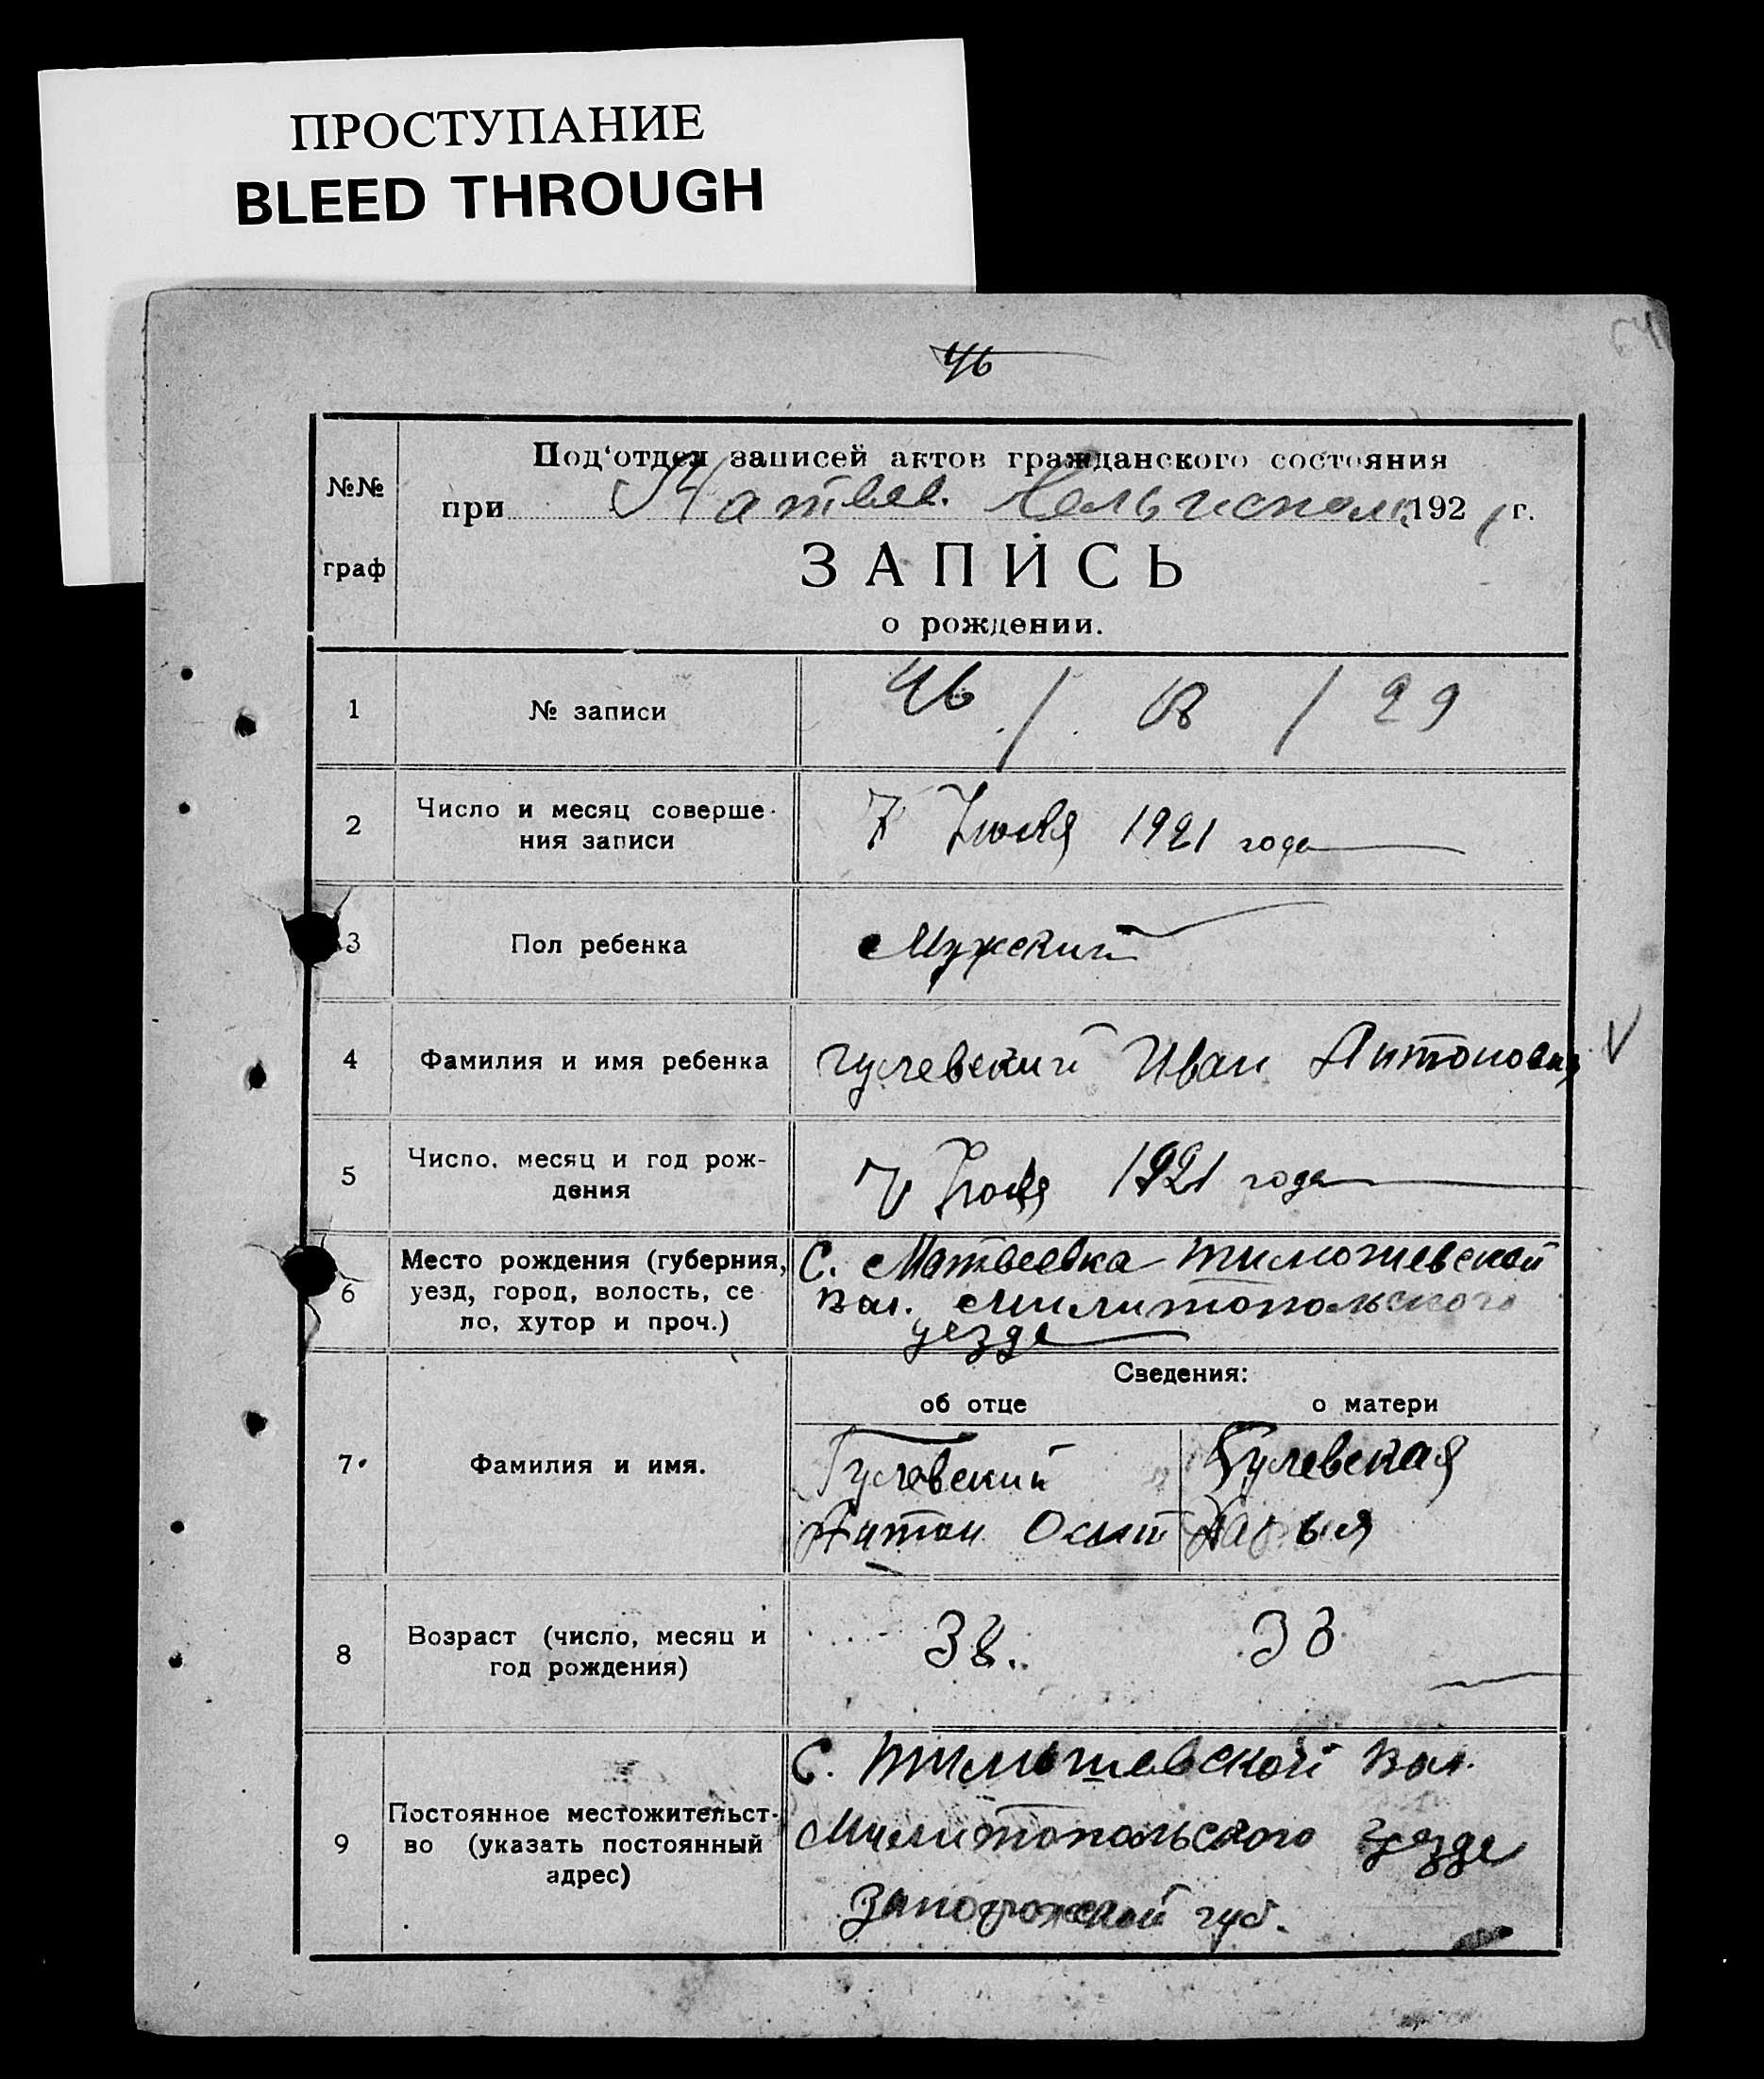 ПРОСТУПАНИЕ
BLEED THROUGH
46
№№
граф
Под‘отдел записей актов гражданского состояния
при Матвеев. Сельисполк. 1921 г.
ЗАПИСЬ
о рождении.
1 № записи 46 / 18 / 29
2 Число и месяц соверше-
ния записи
7 Июля 1921 года
3 Пол ребенка Мужский
4 Фамилия и имя ребенка Гулевский Иван Антонович
5 Число, месяц и год рож-
дения
7 Июля 1921 года
6 Место рождения (губерния,
уезд, город, волость, се-
ло, хутор и проч.)
С. Матвеевка Тимошевской
вол. Милитопольского
уезда
Сведения:
об отце о матери
7 Фамилия и имя.
Гулевский Гулевская
Антон Осип Дарья
8 Возраст (число, месяц и
год рождения)
38. 33
9 Постоянное местожительст-
во (указать постоянный
адрес)
С. Тимошевской вол.
Милитопольского уезда
Запорожской губ.